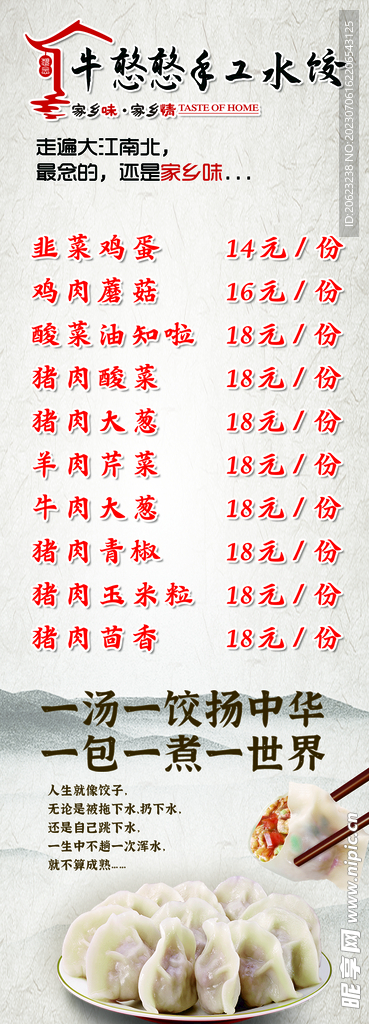 牛憨憨手工水饺
家乡味·家乡情 TASTE OF HOME
走遍大江南北，
最念的，还是家乡味...
韭菜鸡蛋 14元/份
鸡肉蘑菇 16元/份
酸菜油知啦 18元/份
猪肉酸菜 18元/份
猪肉大葱 18元/份
羊肉芹菜 18元/份
牛肉大葱 18元/份
猪肉青椒 18元/份
猪肉玉米粒 18元/份
猪肉茴香 18元/份
一汤一饺扬中华
一包一煮一世界
人生就像饺子.
无论是被拖下水.扔下水.
还是自己跳下水.
一生中不趟一次浑水.
就不算成熟……
ID:20623238 NO:20230706162206543125
昵享网 www.nipic.cn